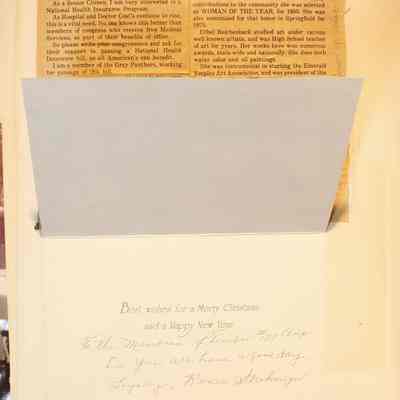 As a Senior Citizen, I am very interested in a
National Health Insurance Program.
As Hospital and Doctor Cost's continue to rise,
this is a vital need. No one knows this better than
members of congress who receive free Medical
Services, as part of their benefits of office.
So please write your congressmen and ask for
their support in passing a National Health
Insurance bill, so all American's can benefit.
I am a member of the Gray Panthers, working
for passage of this bill.
contributions to the community she was selected
as WOMAN OF THE YEAR, for 1980. She was
also nominated for that honor in Springfield for
1975.
Ethel studied art under various
well known artists, and was High School teacher
of art for years. Her works have won numerous
awards, state wide and nationally. She does both
water color and oil paintings.
She was instrumental in starting the Emerald
Empire Art Association, and was president of this
Best wishes for a Merry Christmas
and a Happy New Year
To the Members of
Do you all have a good day
Loyalty,